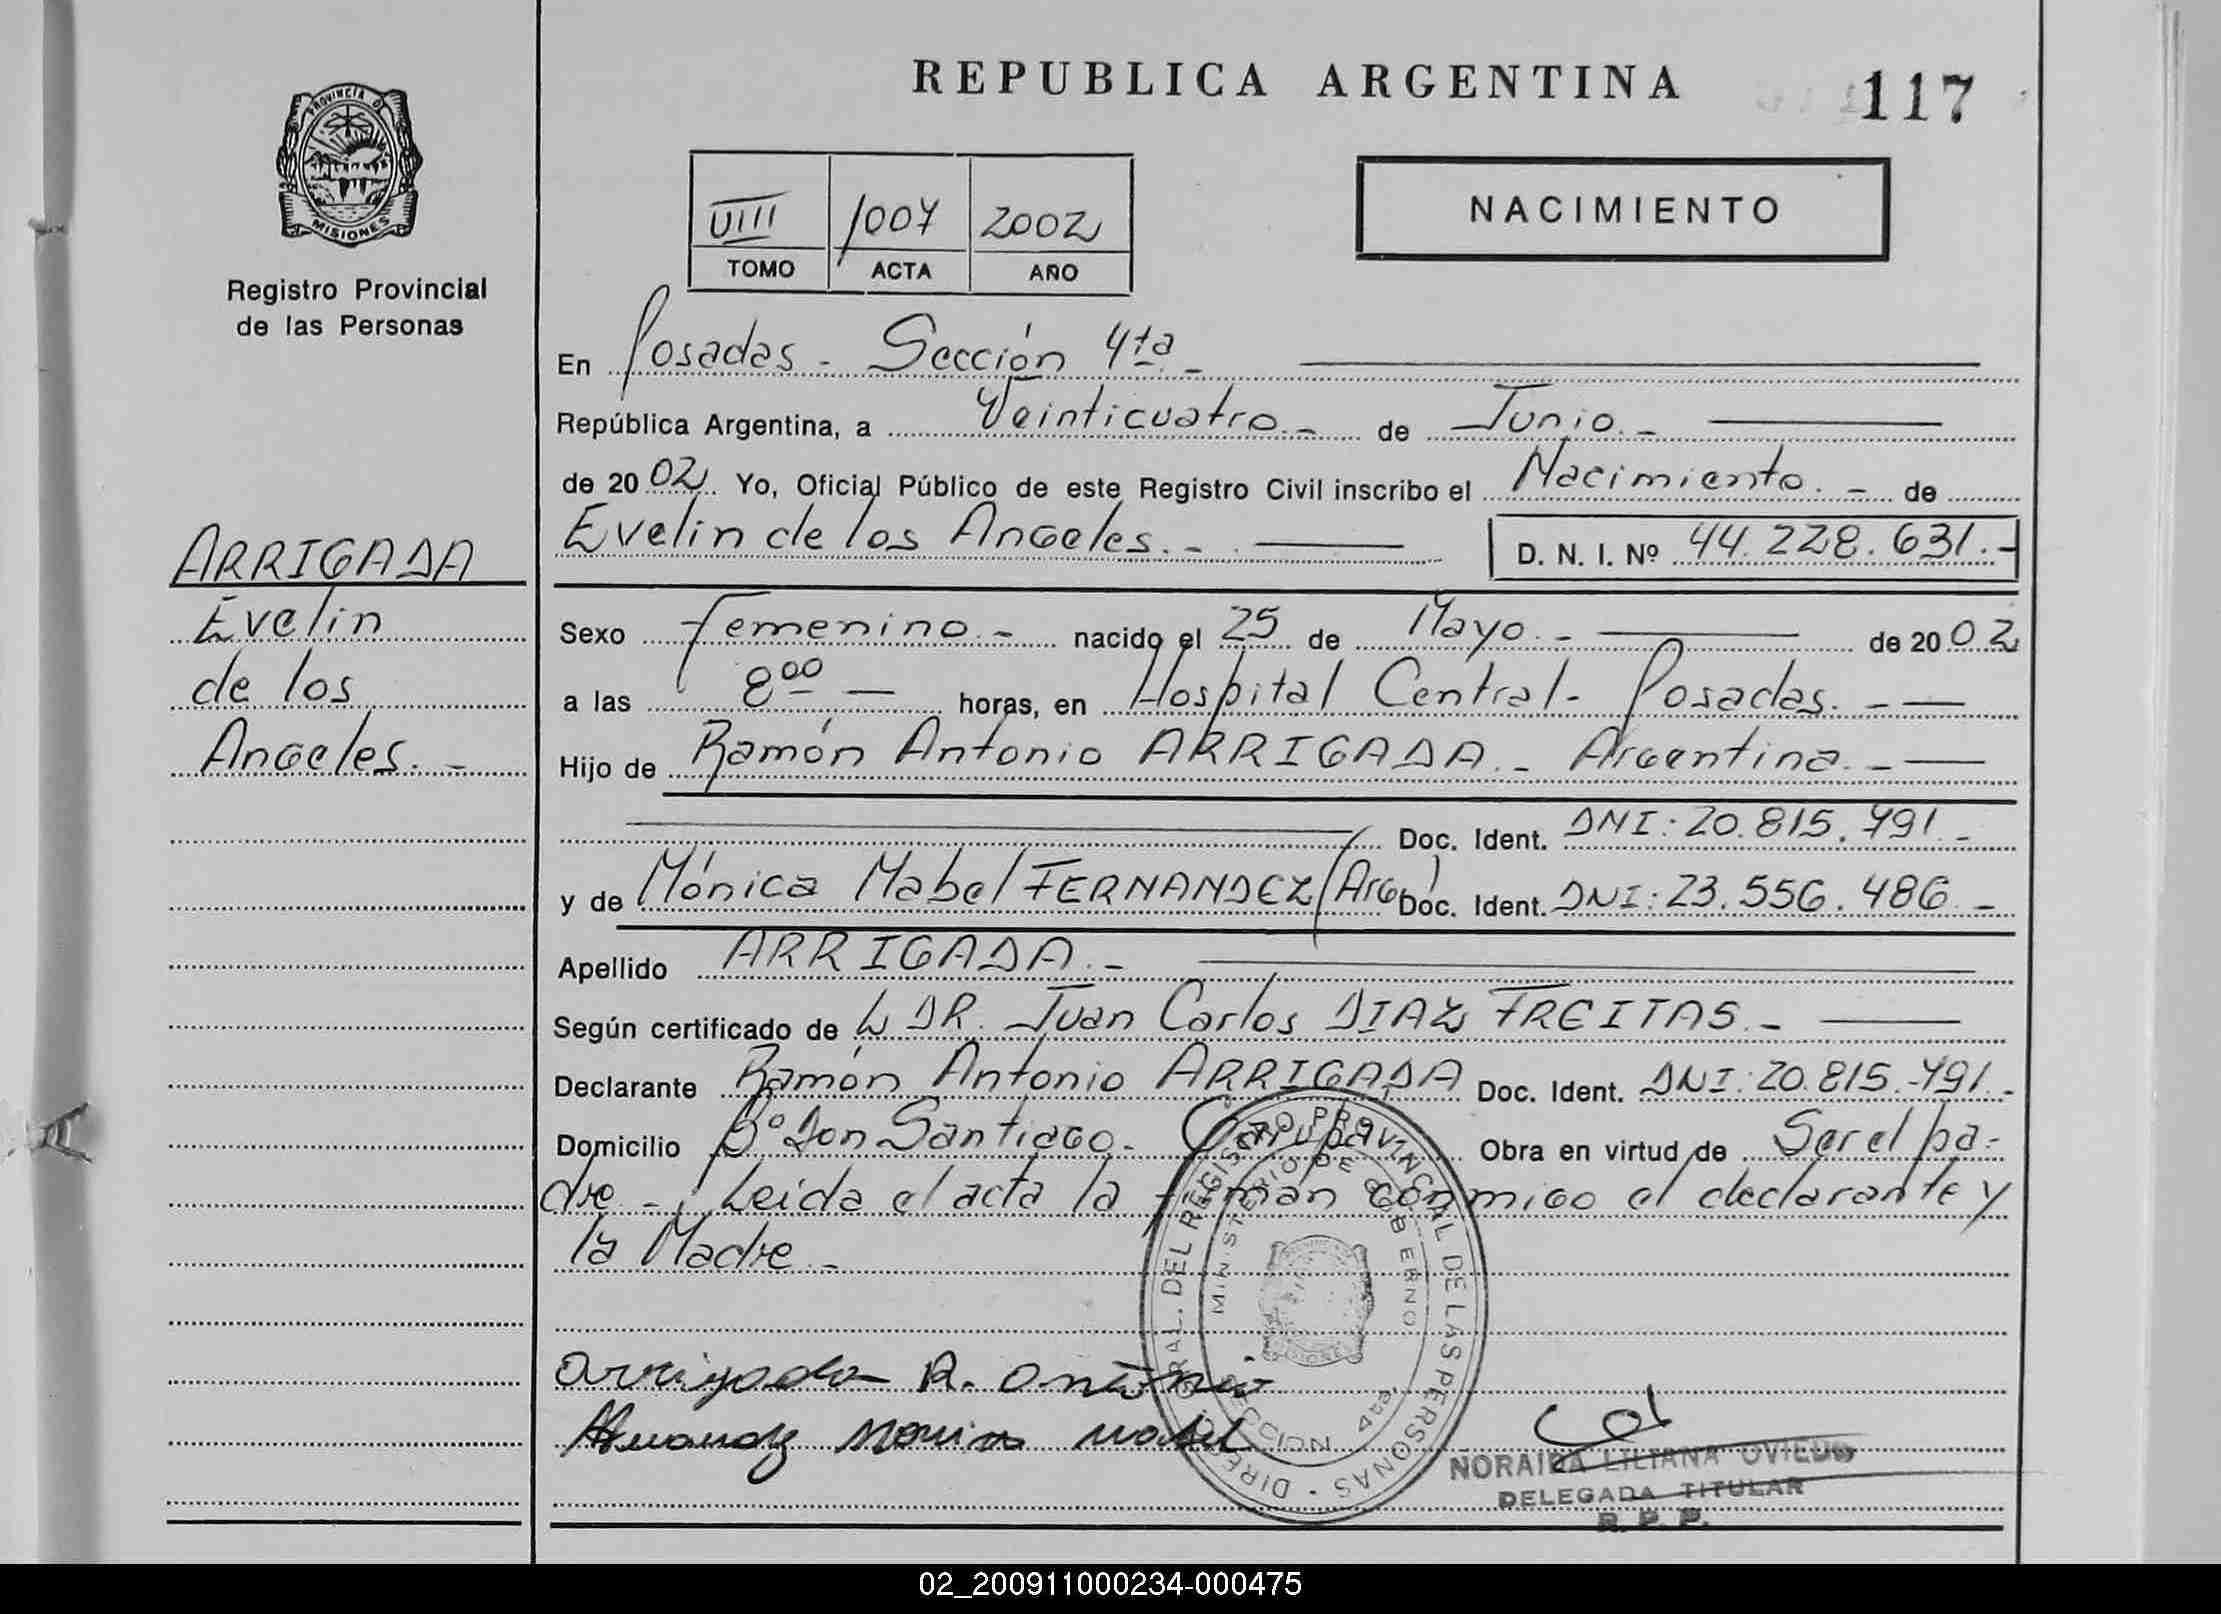 REPUBLICA ARGENTINA
117
PROVINCIA D
MISIONES
Registro Provincial
de las Personas
VIII 1007 2002
TOMO ACTA AÑO
NACIMIENTO
En Posadas - Sección 4ta. -
República Argentina, a Veinticuatro. - de Junio. -
de 20 02 Yo, Oficial Público de este Registro Civil inscribo el Nacimiento. - de
Evelin de los Angeles. - D. N. I. Nº 44.228.631.-
ARRIGADA
Evelin
de los
Angeles. -
Sexo Femenino. - nacido el 25 de Mayo. - de 20 02
a las 8 00 — horas, en Hospital Central - Posadas. -
Hijo de Ramón Antonio ARRIGADA. - Argentina. -
Doc. Ident. DNI: 20.815.491. -
y de Mónica Mabel FERNANDEZ (Arg.) Doc. Ident. DNI: 23.556.486. -
Apellido ARRIGADA. -
Según certificado de L DR. Juan Carlos DIAZ FREITAS. -
Declarante Ramón Antonio ARRIGADA Doc. Ident. DNI: 20.815.491. -
Domicilio Bº Don Santiago - Garupá Obra en virtud de Ser el pa-
dre - Leida el acta la firman conmigo el declarante y
la Madre -
DIREC. GRAL. DEL REGISTRO PROVINCIAL DE LAS PERSONAS
MINISTERIO DE GOBIERNO
MISIONES
Arrigada R. Antonio
Fernandez Monica Mabel
NORAIDA LILIANA OVIEDO
DELEGADA TITULAR
R. P. P.
02_200911000234-000475